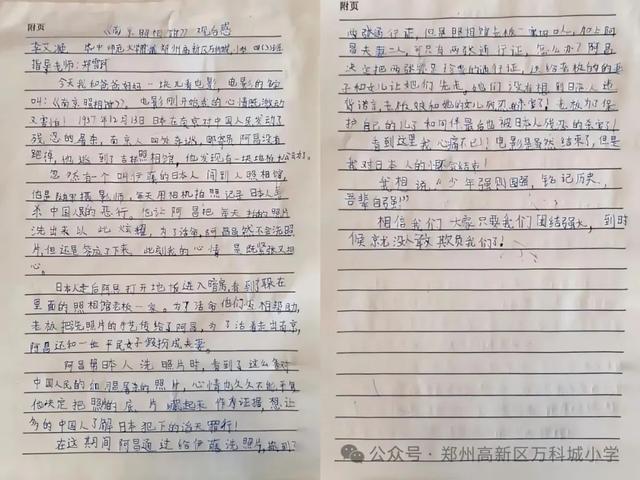 附页
《南京照相馆》观后感
华中师范大学附属郑州高新区万科城小学 四(3)班
指导老师：郑雪珂
今天我和爸爸妈妈一块儿看电影，电影的名
叫：《南京照相馆》，电影刚开始我的心情既激动
又害怕！1937年12月13日日本在南京对中国人民发动了
残忍的屠杀，南京人四处奔逃，邮差员阿昌没有
跑掉，他逃到了吉祥照相馆，他发现有一块地板
忽然有一个叫伊藤的日本人闯到人照相馆，
他是随军摄影师，每天用相机拍照记录日本人
杀中国人民的恶行。他让阿昌把每天拍的照片
洗出来以此炫耀，为了活命，阿昌虽然不会洗照
片，但还是答应了下来，此刻我的心情是既紧张又担
心。
日本人走后阿昌打开地板进入暗房，看到了躲在
里面的照相馆老板一家。为了活命他们互相帮助，
老板把洗照片的手艺传给了阿昌，为了活着走出南京，
阿昌还和一位平民女子假扮成夫妻。
阿昌帮日本人洗照片时，看到了这么多对
中国人民的血腥屠杀的照片，心情也久久不能平复
他决定把照片的底片藏起来作为证据，想让
多的中国人了解日本犯下的滔天罪行！
在这期间阿昌通过给伊藤洗照片，换到了
附页
两张通行证，但是照相馆老板一家四口人，加上阿
昌夫妻二人，可只有两张通行证，怎么办？阿昌
决定把两张珍贵的通行证，送给老板的妻
子和女儿让她们先走，她们没有想到日本人违
背诺言，老板娘和她的女儿残忍的杀害了！老板为了保
护自己的儿子和同伴最后也被日本人残忍的杀害了！
看到这里我心痛不已！电影虽然结束了，但是
我对日本人的
我想说"少年强则国强，铭记历史，
吾辈自强！"
相信我们大家只要我们团结强大，到时
候就没人敢欺负我们了！
公众号·郑州高新区万科城小学